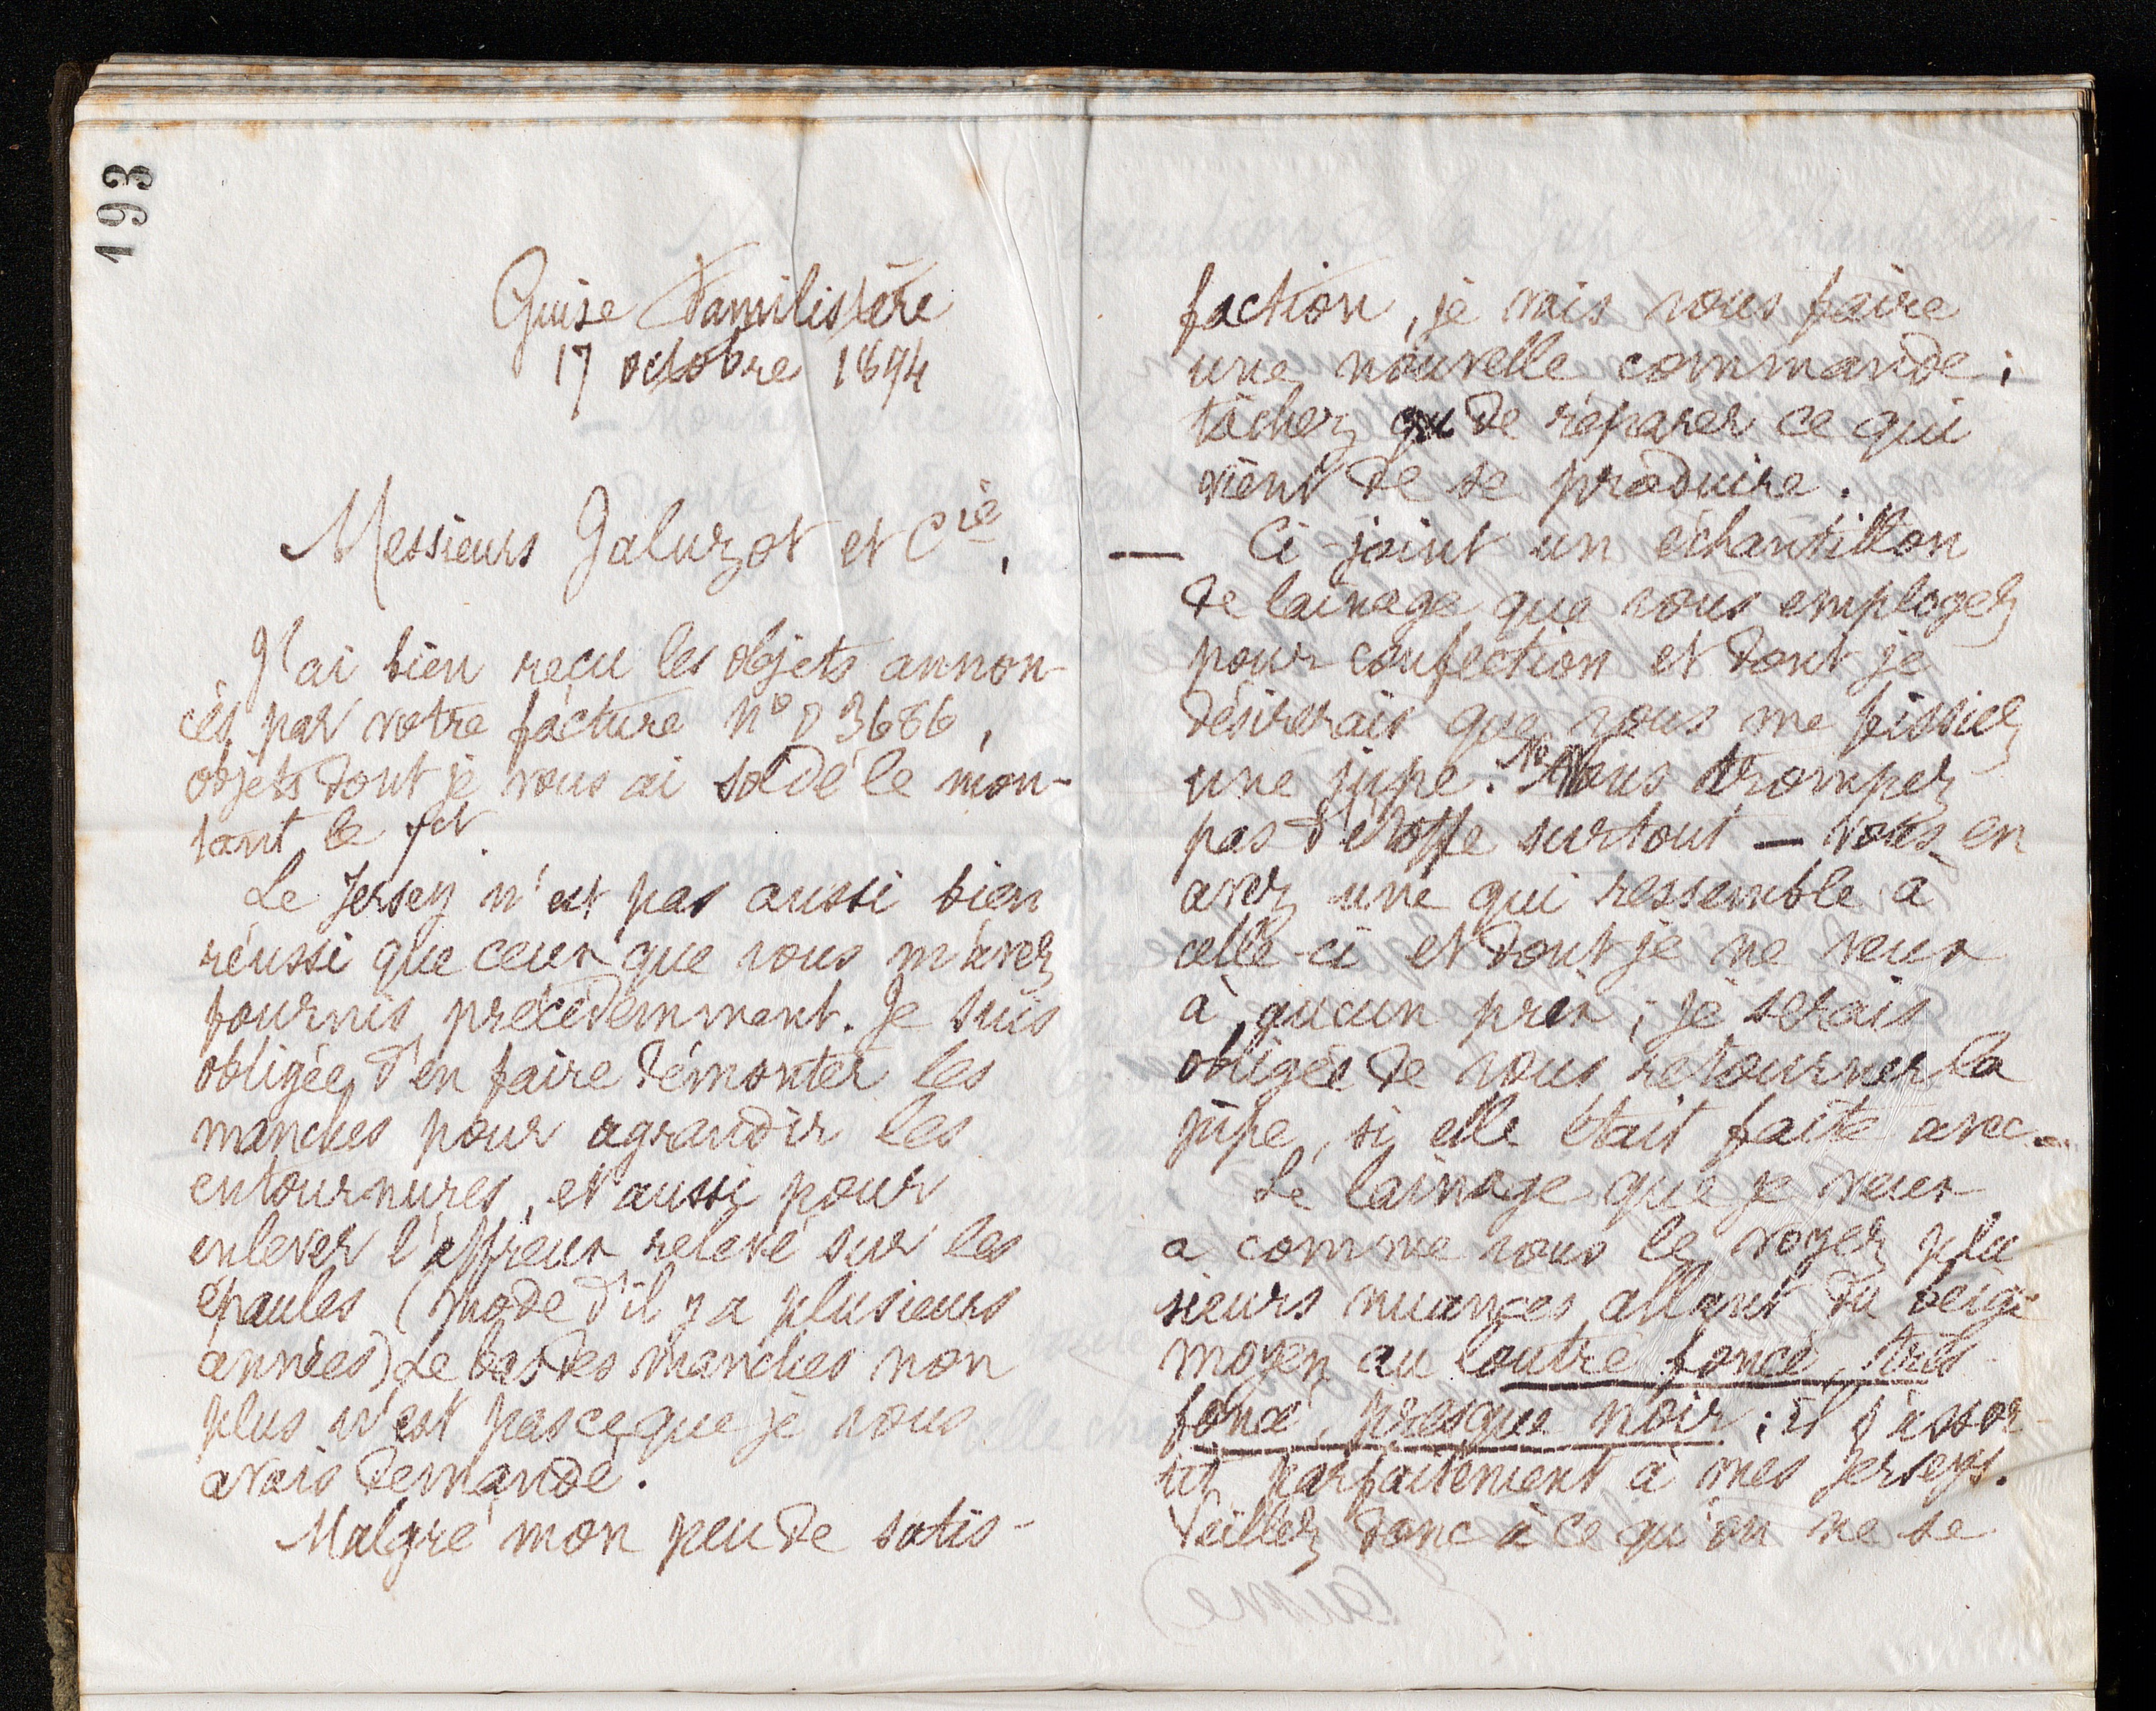 193
Guise Familistère
17 octobre 1894
Messieurs Jaluzot et Cie,
J'ai bien reçu les objets annon-
cés par votre facture n° D 3686,
objets dont je vous ai soldé le mon-
tant le
Le Jersey n'est pas aussi bien
réussi que ceux que vous m'avez
fournis précédemment. Je suis
obligée d'en faire démonter les
manches pour agrandir les
entournures, et aussi pour
enlever l'affreux relevé sur les
épaules (mode d'il y a plusieurs
années) Le bas des manches non
plus n'est pas ce que je vous
avais demandé.
Malgré mon peu de satis-
faction, je vais vous faire
une nouvelle commande;
tâchez de réparer ce qui
vient de se produire.
— Ci-joint un échantillon
de lainage que vous employez
pour confection et dont je
désirerais que vous me fissiez
une jupe. Ne vous trompez
pas d'étoffe surtout — vous en
avez une qui ressemble à
celle-ci et dont je ne veux
à aucun prix; je serais
obligée de vous retourner la
jupe, si elle était faite avec.
Le lainage que je veux
a comme vous le voyez plu
sieurs nuances allant du beige
moyen au loutre foncé, très
foncé, presque noir; il s'assor
tit parfaitement à mes jerseys.
Veillez donc à ce qu'on ne se